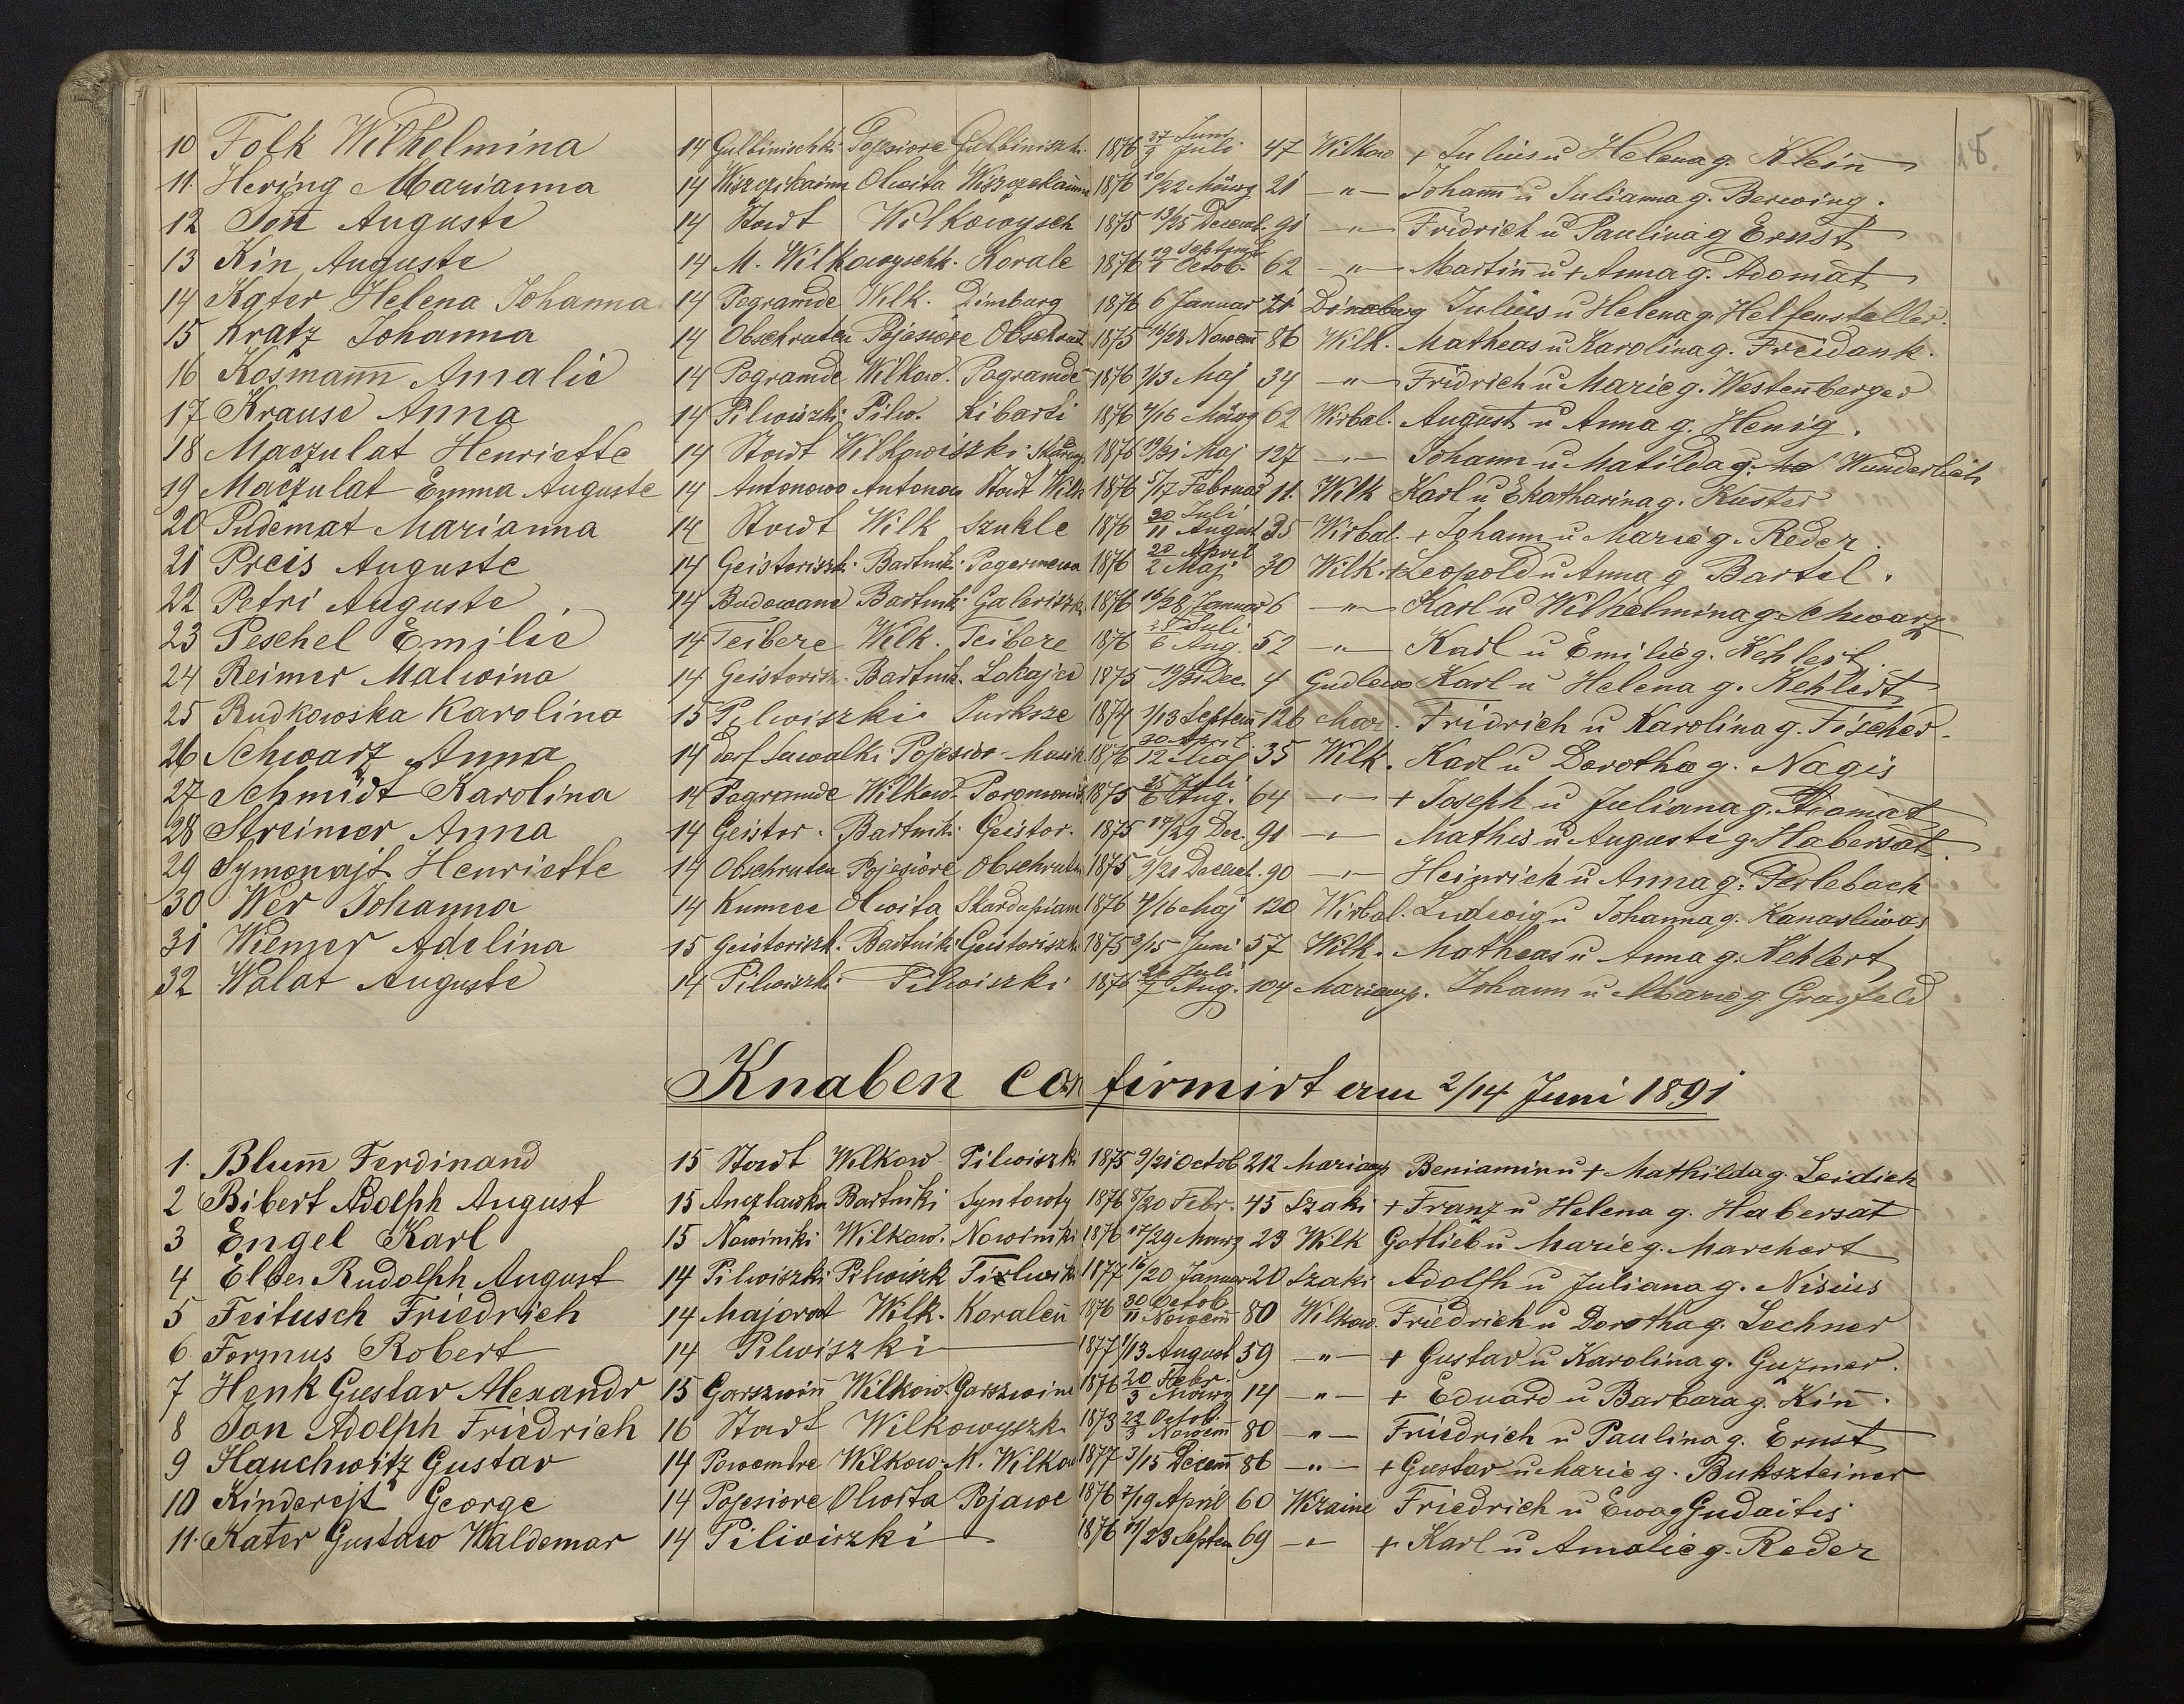 18.
10 Folk Wilhelmina 14 Gulbinischki Pojesiore Gulbiniszk. 1876 27 Juni / 9 Juli 47 Wilkow + Julius u Helena g. Klein
11. Hering Marianna 14 Wiszczikaimn Olwita Wiszczokaimn 1876 10/22 März 21 –"– Johann u Julianna g. Berwing.
12 Jon Auguste 14 Stadt Wilkowysch 1875 13/25 Decemb. 91 –"– Fridrich u Paulina g Ernst
13 Kin Auguste 14 M. Wilkowyschk. Korale 1876 19 Septemb / 1 Octob. 62 –"– Martin u + Anna g. Adomat
14 Kater Helena Johanna 14 Pogramde Wilk. Dinburg 1876 6 Januar 21 Dinaburg Julius u Helena g. Helfensteller.
15 Kratz Johanna 14 Obschruten Pojesiore Obschrut 1875 16/28 Novem 86 Wilk. Matheas u Karolina g. Freidank.
16 Kosmann Amalie 14 Pogramde Wilkow. Pogramde 1876 1/13 Maj 34 –"– Fridrich u Marie g. Westenberger
17 Krause Anna 14 Pilwiszki Pilw. Libarti 1876 4/16 März 62 Wirbal. August u Anna g. Henig.
18 Maczulat Henriette 14 Stadt Wilkowiszki 1876 19/31 Maj 127 –"– Johann u Matilda g. Wunderlich
19 Maczulat Emma Auguste 14 Antonowo Antonow Stadt Wilk 1876 5/17 Februar 11. Wilk Karl u Ekatharina g. Kuster
20 Pudemat Marianna 14 Stadt Wilk Szukle 1876 30 Juli / 11 August 35 Wirbal. + Johann u Marie g. Reder.
21 Preis Auguste 14 Geistoriszk. Bartnik. Pagermena 1876 20 April / 2 Maj 30 Wilk. + Leopold u Anna g Bartel.
22 Petri Auguste 14 Budowane Bartnik. Galeriszk 1876 16/28 Januar 6 –"– Karl u Wilhelmina g. Schwarz
23 Peschel Emilie 14 Teibere Wilk. Teibere 1876 25 Juli / 6 Aug. 52 –"– Karl u Emilie g. Kehlert.
24 Reimer Malwina 14 Geistorisz. Bartnik. Lokajze 1875 19/31 Dec. 4 Gudlewo Karl u Helena g. Kehlert
25 Rudkowska Karolina 15 Pilwiszki Turksze 1874 1/13 Septem 126 Mar. Fridrich u Karolina g. Fischer.
26 Schwarz Anna 14 Dorf Suwalki Pojesior 1876 30 April / 12 Maj 35 Wilk. Karl u Dorothea g. Nagis
27 Schmidt Karolina 14 Pogramde Wilkow. 1875 25 Juli / 6 Aug. 64 –"– + Joseph u Juliana g. Adomat
28 Streimer Anna 14 Geistor. Bartnik. Geistor. 1875 17/29 Dec. 91 –"– Mathis u Auguste g. Habersat.
29 Symonajt Henriette 14 Obschruten Pojesiore Obschruten 1875 9/21 Decemb. 90 –"– Heinrich u Anna g. Perlebach
30 Wer Johanna 14 Kumece Olwita Skardupiam 1876 4/16 Maj 120 Wirbal. Ludwig u Johanna g. Kanasliwas
31 Wiemer Adelina 15 Geistoriszk. Bartnik. Geistoriszk 1875 3/15 Juni 57 Wilk. Matheas u Anna g. Kehlert
32 Walat Auguste 14 Pilwiszki Pilwiszki 1876 26 Juli / 7 Aug. 104 Mariamp. Johann u Marie g Grasfeld
Knaben confirmirt am 2/14 Juni 1891
1. Blum Ferdinand 15 Stadt Wilkow Pilwiszki 1875 9/21 Octob 212 Mariamp Beniamin u + Mathilda g. Leidich
2 Bibert Adolph August 15 Anczlawka Bartniki Syntowty 1876 8/20 Febr. 45 Szaki + Franz u Helena g. Habersat
3 Engel Karl 15 Nowiniki Wilkow. Nowiniki 1876 17/29 März 23 Wilk Gotlieb u Marie g. Marchert
4 Elber Rudolph August 14 Pilwiszki Pilwiszk 1877 16/20 Januar 20 Szaki Adolph u Juliana g. Nisius
5 Feitusch Friedrich 14 Majorat Wilk. Koralen 1876 30 Octob. / 11 Novem 80 Wilkow. Friedrich u Dorotha g. Lechner
6 Formus Robert 14 Pilwiszki 1877 1/13 August 59 –"– + Gustav u Karolina g. Guzmer.
7 Henk Gustav Alexandr 15 Garszwin Wilkow. Garszwine 1876 20 Febr. / 3 März 14 –"– + Eduard u Barbara g. Kin.
8 Jon Adolph Friedrich 16 Stadt Wilkowyszk 1873 22 Octob. / 3 Novem 80 –"– Friedrich u Paulina g. Ernst
9 Hauchwitz Gustav 14 Powembre Wilkow. M. Wilkow 1877 3/15 Dezem 86 –"– + Gustav u Marie g. Bukszteiner
10 Kinderejt George 14 Pojesiore Olwita Pojawe 1876 7/19 April 60 Wizaine Friedrich u Ewa g Gudaitis
11. Kater Gustaw Waldemar 14 Pilwiszki 1876 11/23 Septem 69 –"– + Karl u Amalie g. Reder